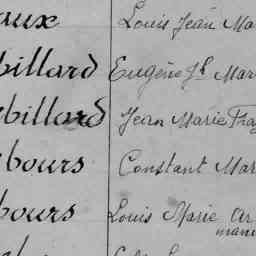 aux Louis Jean Ma
billard Eugène Jh Mar
billard Jean Marie Fra
bours Constant Mar
bours Louis Marie Ar
mand